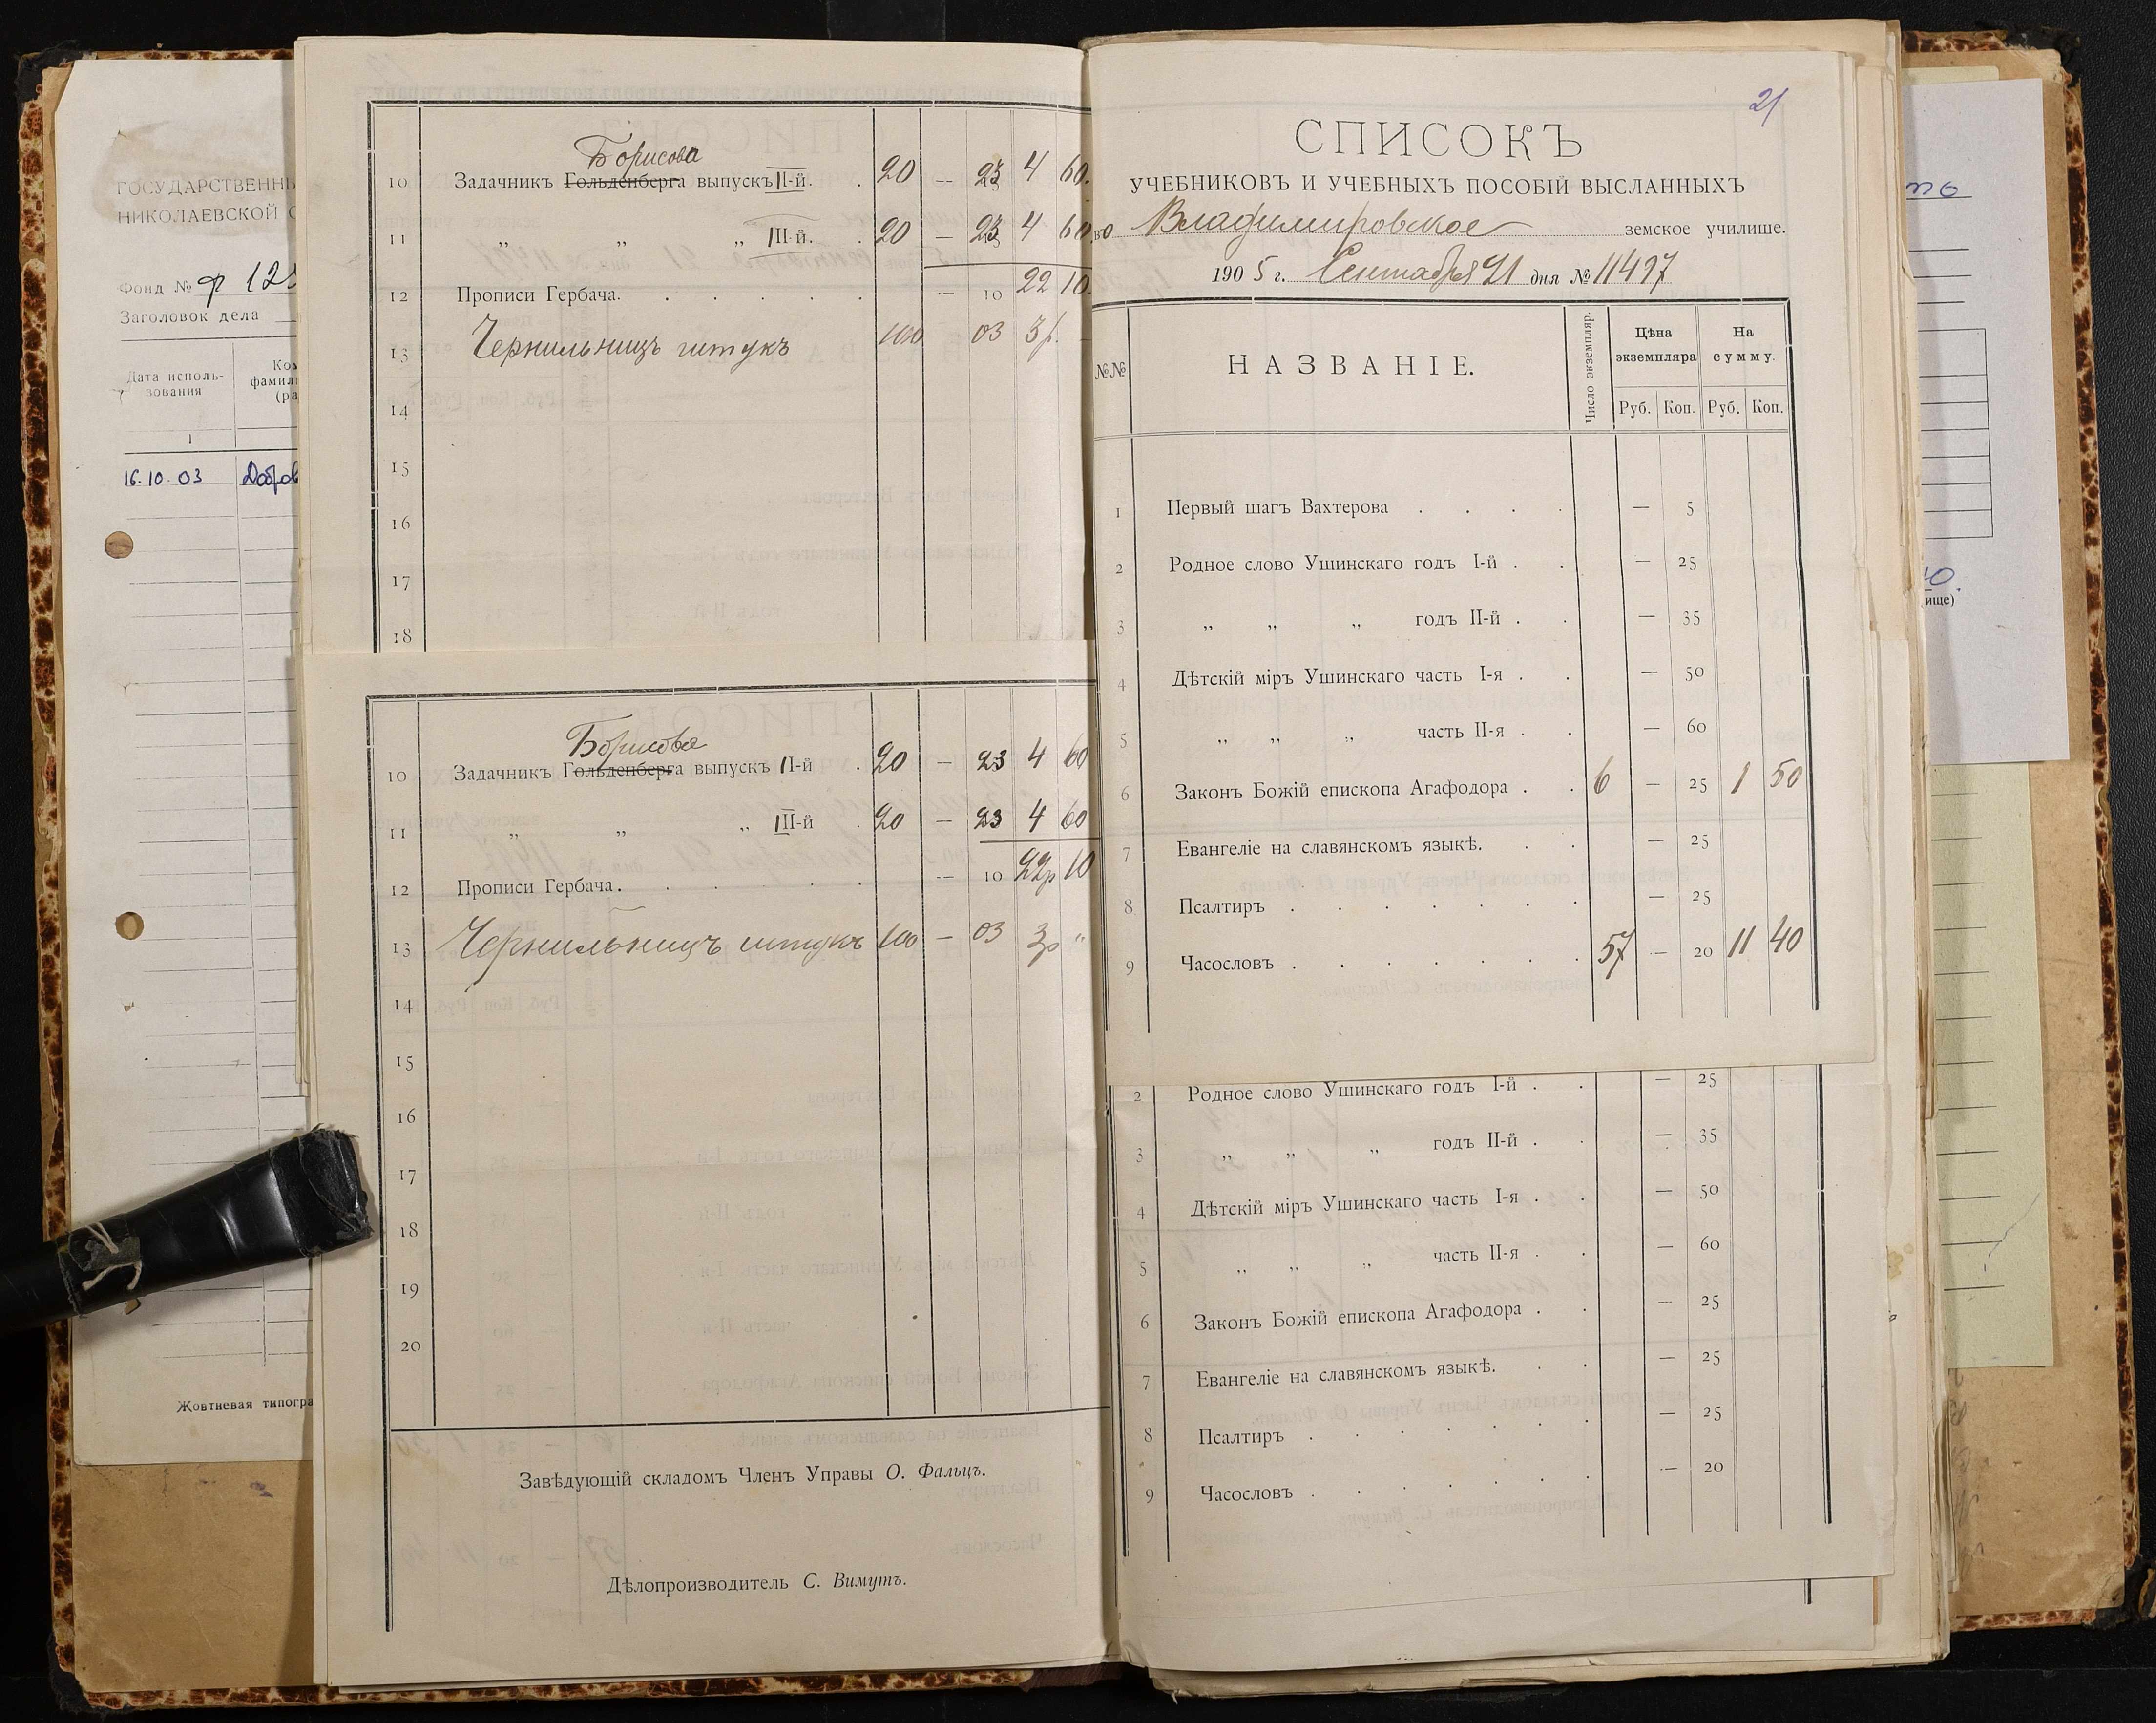 ГОСУДАРСТВЕННЫ
НИКОЛАЕВСКОЙ О
Фонд № ф 12
Заголовок дела
Дата исполь-
зования
фамил
1
16.10.03
Жовтневая типогра
Борисова
10 Задачникъ Гольденберга выпускъ III-й. 20 — 23 4 60.
11 „ „ „ III-й. 20 — 23 4 60
22 10.
12 Прописи Гербача. — 10
13 Чернильницъ штукъ 100 03 3р. —
14
15
16
17
18
Борисова
10 Задачникъ Гольденберга выпускъ II-й 20 — 23 4 60
11 „ „ „ III-й 20 — 23 4 60
22р 10
12 Прописи Гербача. — 10
13 Чернильницъ штукъ 100 — 03 3р „
14
15
16
17
18
19
20
Завѣдующій складомъ Членъ Управы О. Фальцъ.
Дѣлопроизводитель С. Вимутъ.
21
СПИСОКЪ
УЧЕБНИКОВЪ И УЧЕБНЫХЪ ПОСОБІЙ ВЫСЛАННЫХЪ
во Владимировское земское училище.
1905 г. Сентября 21 дня № 11497
№№ НАЗВАНІЕ. Число экземпляр. Цѣна экземпляра На сумму.
Руб. Коп. Руб. Коп.
1 Первый шагъ Вахтерова — 5
2 Родное слово Ушинскаго годъ I-й — 25
3 „ „ „ годъ II-й — 35
4 Дѣтскій міръ Ушинскаго часть I-я — 50
5 „ „ „ часть II-я — 60
6 Законъ Божій епископа Агафодора 6 — 25 1 50
7 Евангеліе на славянскомъ языкѣ. — 25
8 Псалтиръ — 25
9 Часословъ 57 — 20 11 40
2 Родное слово Ушинскаго годъ I-й — 25
3 „ „ „ годъ II-й — 35
4 Дѣтскій міръ Ушинскаго часть I-я — 50
5 „ „ „ часть II-я — 60
6 Законъ Божій епископа Агафодора — 25
7 Евангеліе на славянскомъ языкѣ. — 25
8 Псалтиръ — 25
9 Часословъ — 20
ище)